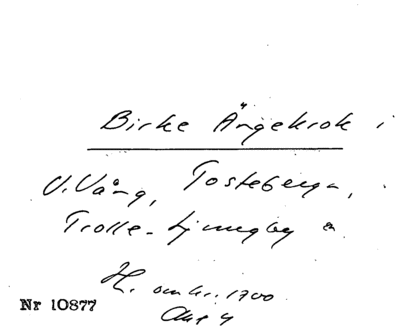 Birke Ängekrok i
V. Vång, Tosteberga,
Trolle-Ljungby
H. omkr. 1700
Nr 10877